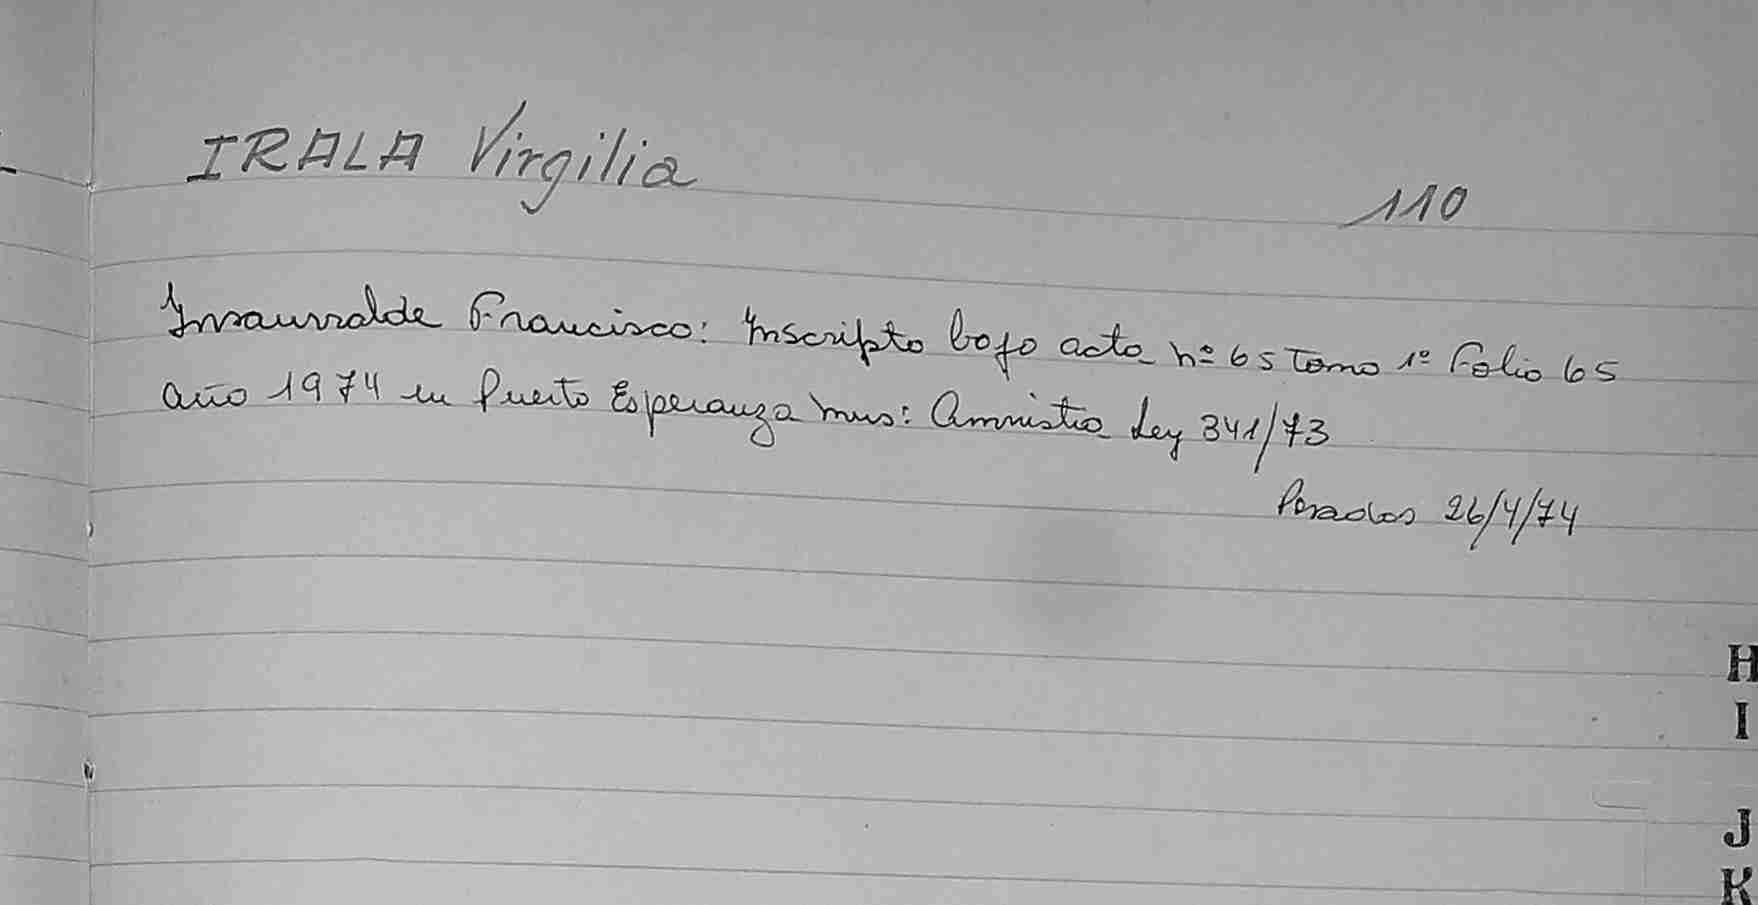 IRALA Virgilia
110
Insaurralde Francisco: Inscripto bajo acta nº 65 Tomo 1º Folio 65
año 1974 en Puerto Esperanza Mns: Amnistia Ley 341/73
Posadas 26/4/74
H
I
J
K